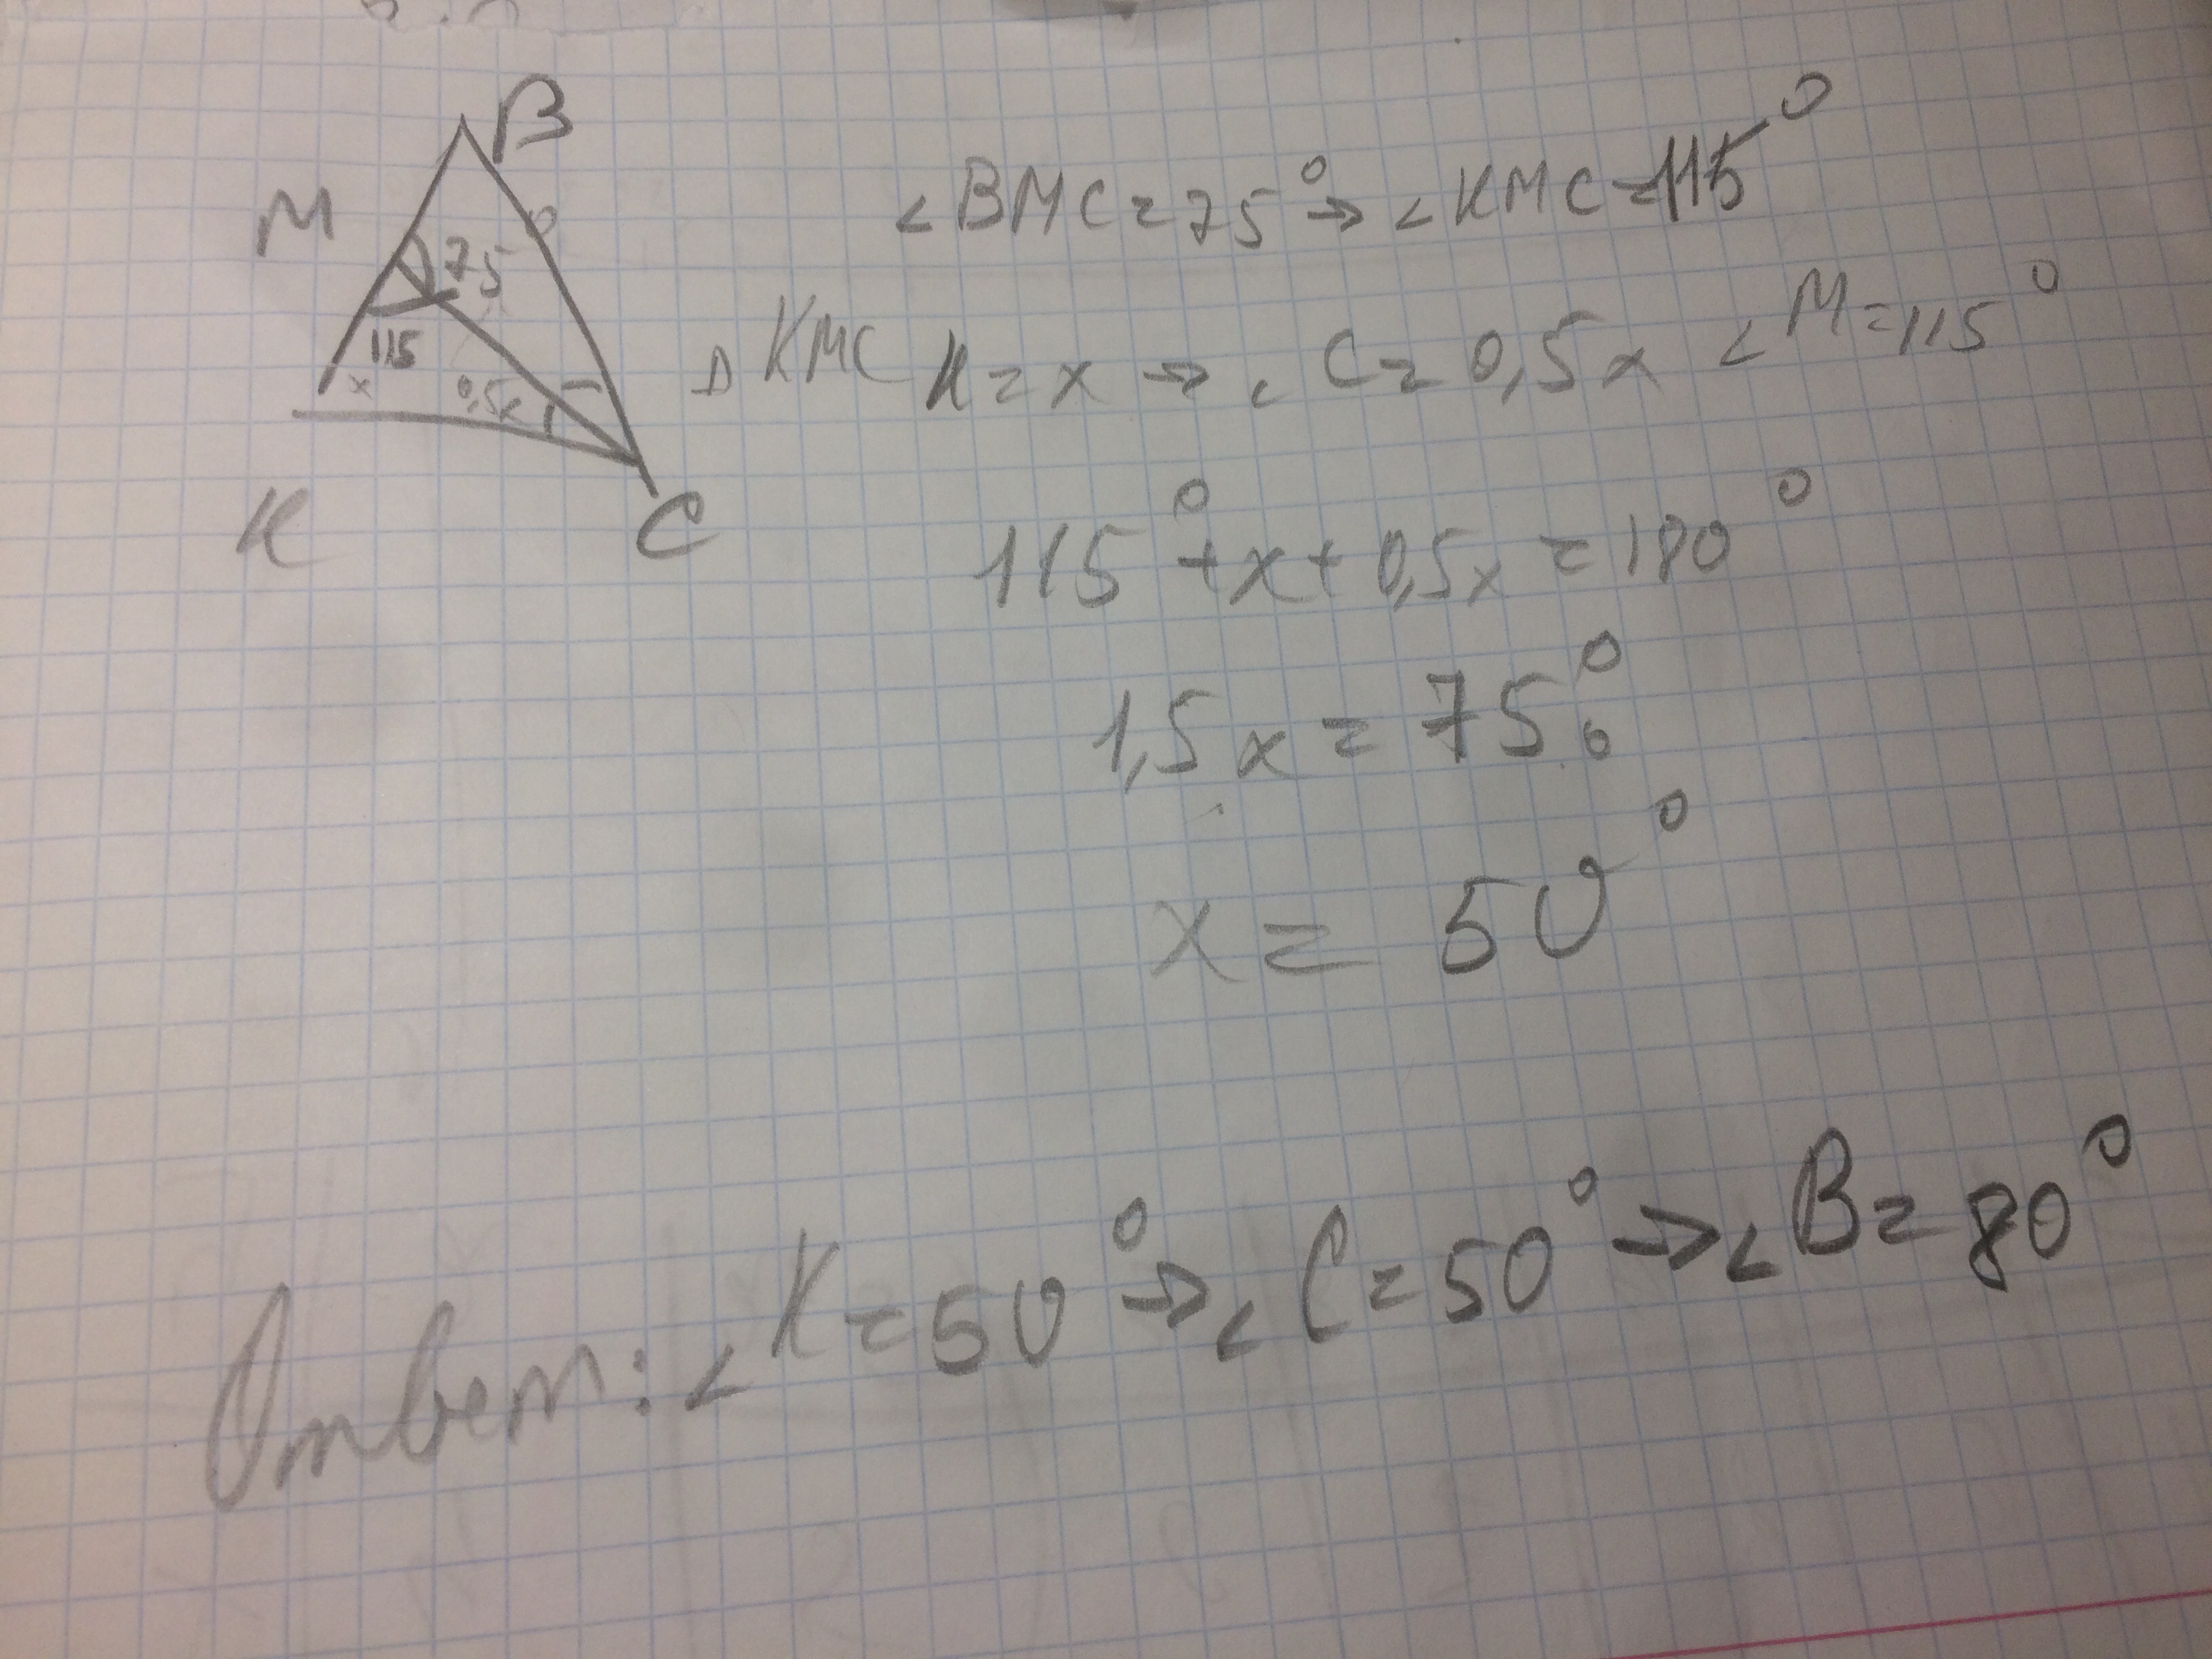 B
M
75°
115
x 0,5x
K C
∠BMC=75° → ∠KMC=115°
△KMC K=x → ∠C=0,5x ∠M=115°
115°+x+0,5x=180°
1,5x=75°
x=50°
Ответ: ∠K=50° → ∠C=50° → ∠B=80°